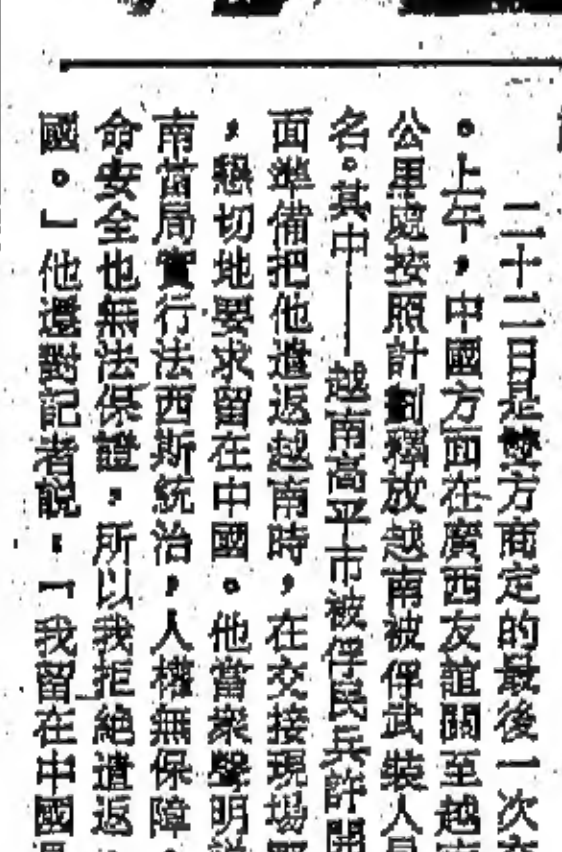 二十二日是雙方商定的最後一次
。上午，中國方面在廣西友誼關至越南
公里處按照計劃釋放越南被俘武裝人員
名。其中——越南高平市被俘民兵許開
面準備把他遣返越南時，在交接現場
，懇切地要求留在中國。他當衆聲明
南當局實行法西斯統治，人權無保障，
命安全也無法保證，所以我拒絕遣返
國。」他還對記者說：「我留在中國